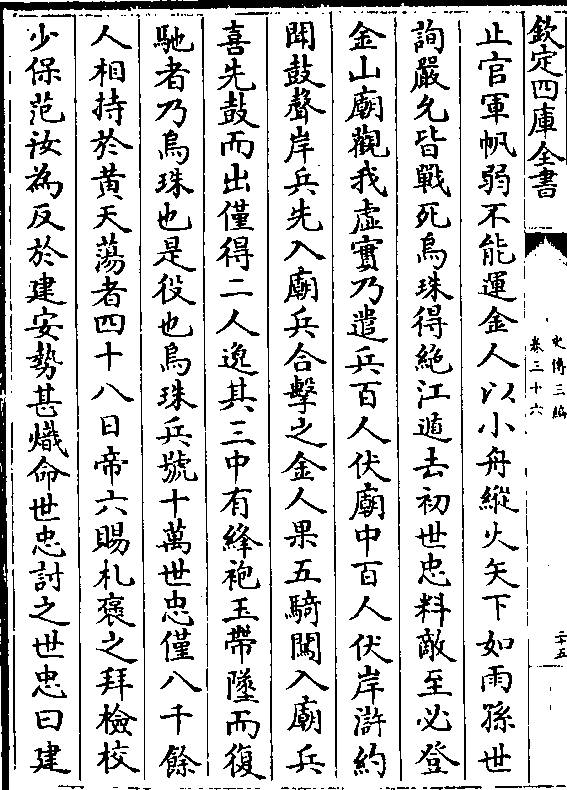 欽定四庫全書
史傳三編
卷三十六
二十五
止官軍帆弱不能運金人以小舟縱火矢下如雨孫世
詢嚴允皆戰死烏珠得絶江遁去初世忠料敵至必登
金山廟觀我虛實乃遣兵百人伏廟中百人伏岸滸約
聞鼓聲岸兵先入廟兵合擊之金人果五騎闖入廟兵
喜先鼓而出僅得二人逸其三中有絳袍玉帶墜而復
馳者乃烏珠也是役也烏珠兵號十萬世忠僅八千餘
人相持於黃天蕩者四十八日帝六賜札褒之拜檢校
少保范汝為反於建安勢甚熾命世忠討之世忠曰建